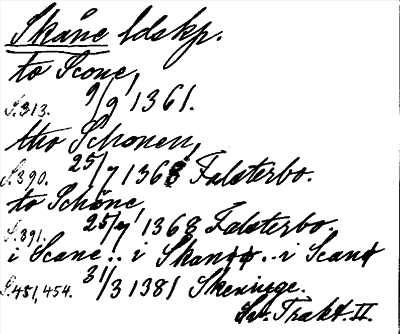 Skåne ldskp.
to Scone,
S. 313. 9/9 1361.
tho Schonen,
S. 390. 25/7 1368 Falsterbo.
to Schöne,
S. 391. 25/7 1368 Falsterbo.
i Scane.. i Skan.. i Scan
S. 451, 454. 31/3 1381 Skeninge.
Sv. Trakt. II.